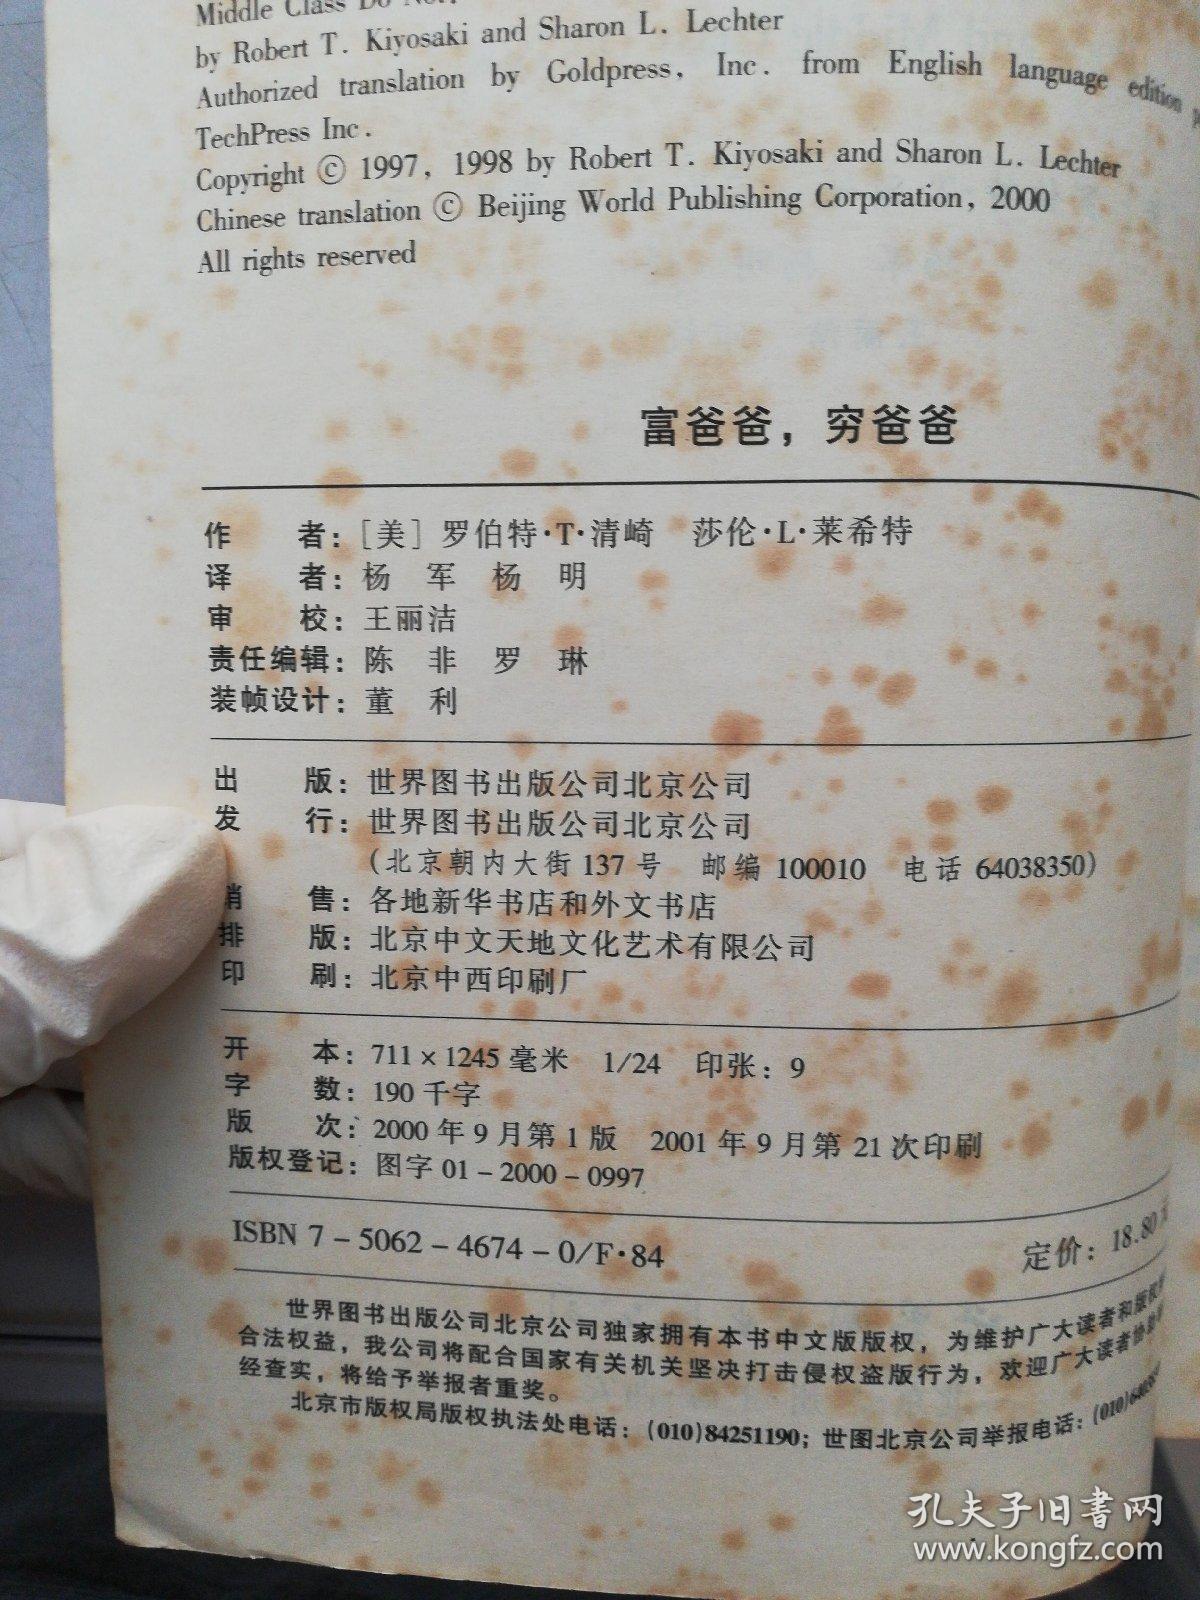 Middle Class Do Not
by Robert T. Kiyosaki and Sharon L. Lechter
Authorized translation by Goldpress, Inc. from English language edition
TechPress Inc.
Copyright © 1997, 1998 by Robert T. Kiyosaki and Sharon L. Lechter
Chinese translation © Beijing World Publishing Corporation, 2000
All rights reserved
富爸爸，穷爸爸
作 者：［美］罗伯特·T·清崎 莎伦·L·莱希特
译 者：杨 军 杨 明
审 校：王丽洁
责任编辑：陈 非 罗 琳
装帧设计：董 利
出 版：世界图书出版公司北京公司
发 行：世界图书出版公司北京公司
（北京朝内大街 137 号 邮编 100010 电话 64038350）
销 售：各地新华书店和外文书店
排 版：北京中文天地文化艺术有限公司
印 刷：北京中西印刷厂
开 本：711×1245 毫米 1/24 印张：9
字 数：190 千字
版 次：2000 年 9 月第 1 版 2001 年 9 月第 21 次印刷
版权登记：图字 01－2000－0997
ISBN 7－5062－4674－0/F·84
定价：18.80 元
世界图书出版公司北京公司独家拥有本书中文版版权，为维护广大读者和版权
合法权益，我公司将配合国家有关机关坚决打击侵权盗版行为，欢迎广大读者协助
经查实，将给予举报者重奖。
北京市版权局版权执法处电话：(010)84251190；世图北京公司举报电话：(010)
孔夫子旧书网
www.kongfz.com